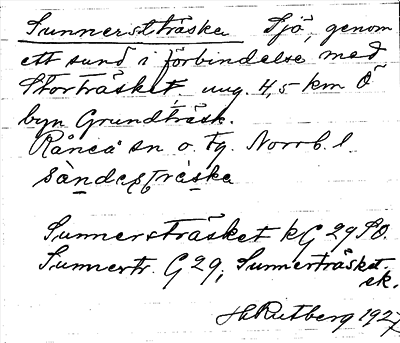 Sunnersträske Sjö, genom
ett sund i förbindelse med
Storträsket, ung. 4,5 km Ö
byn Grundträsk.
Råneå sn o. tg. Norrb. l.
Sunnersträsket kG 29 SO.
Sunnertr. G 29; Sunnerträsket
ek.
H. Rutberg 1927